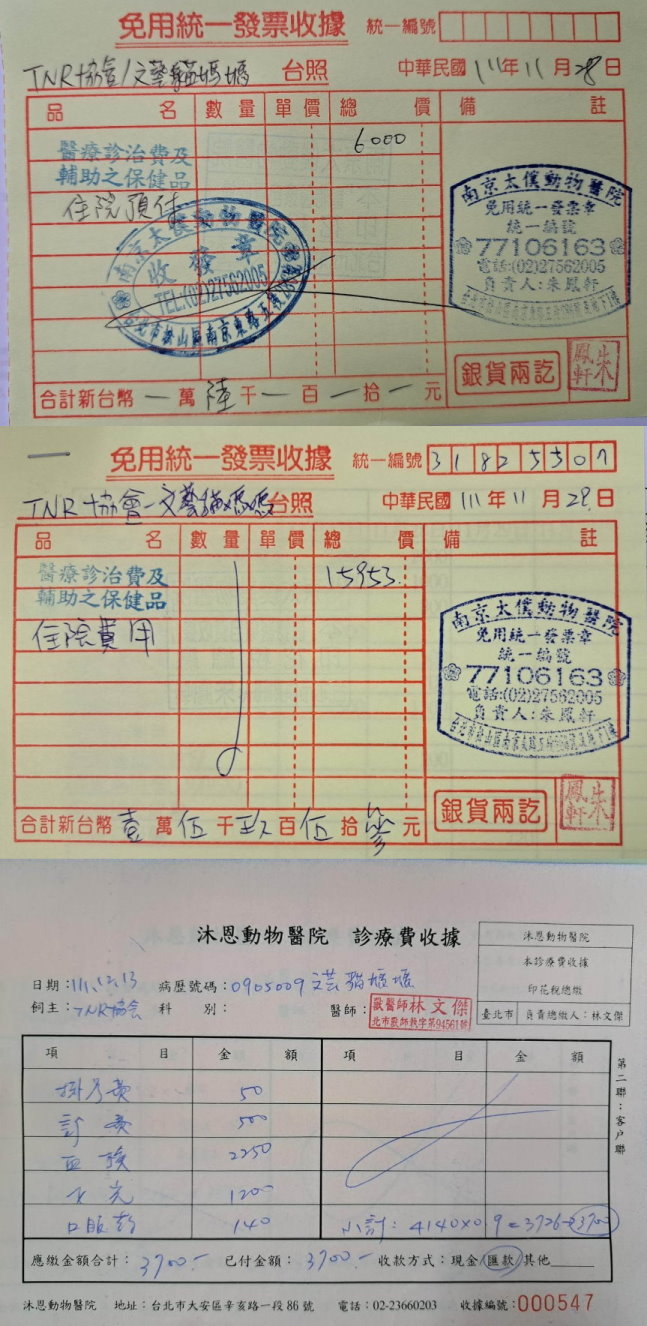 免用統一發票收據 統一編號
TNR協會/文藝貓媽媽 台照 中華民國 111年 11 月 28 日
品名 數量 單價 總價 備註
6000
醫療診治費及
輔助之保健品
住院預付
南京太僕動物醫院
收發章
TEL:(02)27562005
南京太僕動物醫院
免用統一發票章
統一編號
77106163
電話:(02)27562005
負責人:朱鳳軒
銀貨兩訖
朱鳳軒
合計新台幣 一 萬 陸 千 一 百 一 拾 一 元
免用統一發票收據 統一編號 31825507
TNR協會-文藝貓媽媽 台照 中華民國 111 年 11 月 28 日
品名 數量 單價 總價 備註
15953
醫療診治費及
輔助之保健品
住院費用
南京太僕動物醫院
免用統一發票章
統一編號
77106163
電話:(02)27562005
負責人:朱鳳軒
銀貨兩訖
朱鳳軒
合計新台幣 壹 萬 伍 千 玖 百 伍 拾 參 元
沐恩動物醫院 診療費收據
沐恩動物醫院
本診療費收據
印花稅總繳
臺北市 負責總繳人:林文傑
日期:111.12.13 病歷號碼:0905009 文芸貓媽媽
飼主:TNR協會 科別: 醫師:獸醫師林文傑
北市獸師執字第94561號
項目 金額 項目 金額
掛号費 50
診費 500
血驗 2250
X光 1200
口服藥 140 小計: 4140×0.9=3726→3700
第二聯:客戶聯
應繳金額合計:3700.- 已付金額:3700.- 收款方式:現金/匯款/其他
沐恩動物醫院 地址:台北市大安區辛亥路一段86號 電話:02-23660203 收據編號:000547